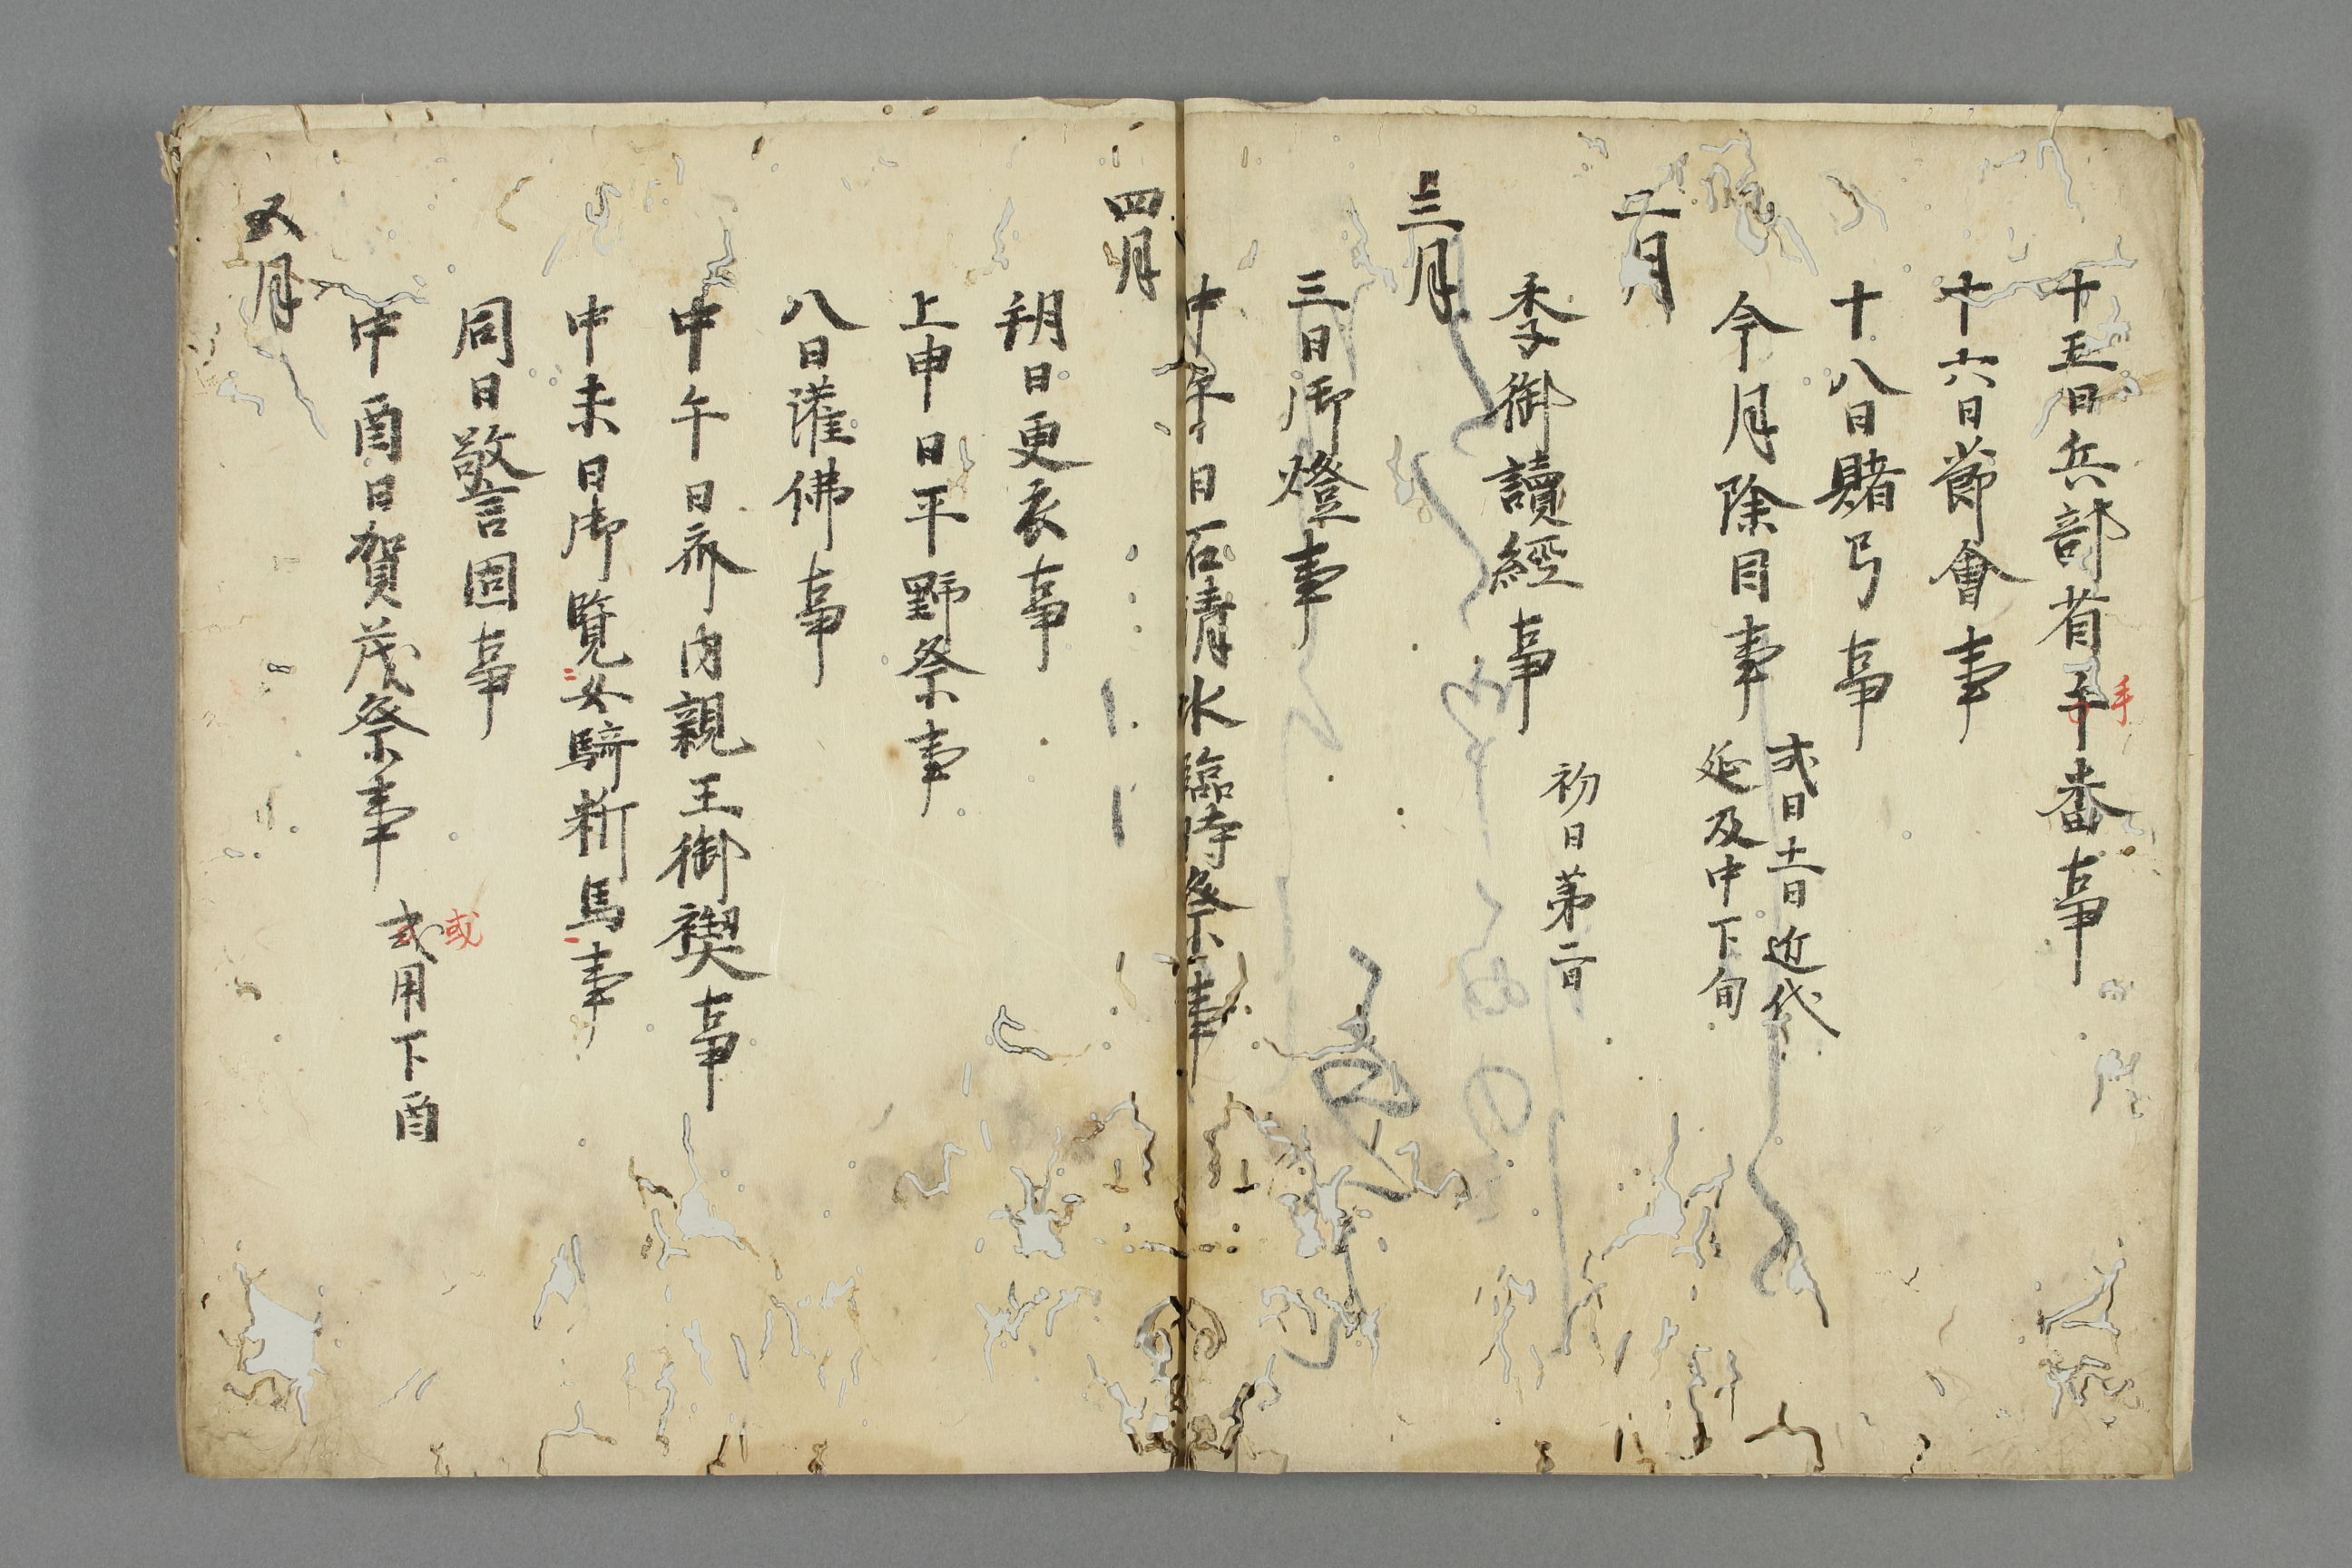 十五日兵部省手番事
手
十六日節會事
十八日賭弓事
今月除目事
式日十一日近代
延及中下旬
二月
季御讀經事
初日第二日
三月
三日御燈事
中午日石清水臨時祭事
四月
朔日更衣事
上申日平野祭事
八日灌佛事
中午日斎内親王御禊事
中未日御覧女騎断馬事
同日警固事
中酉日賀茂祭事
式用下酉
或
五月